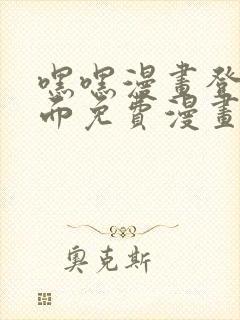 嘿嘿漫畫登
面免費漫畫
奧克斯